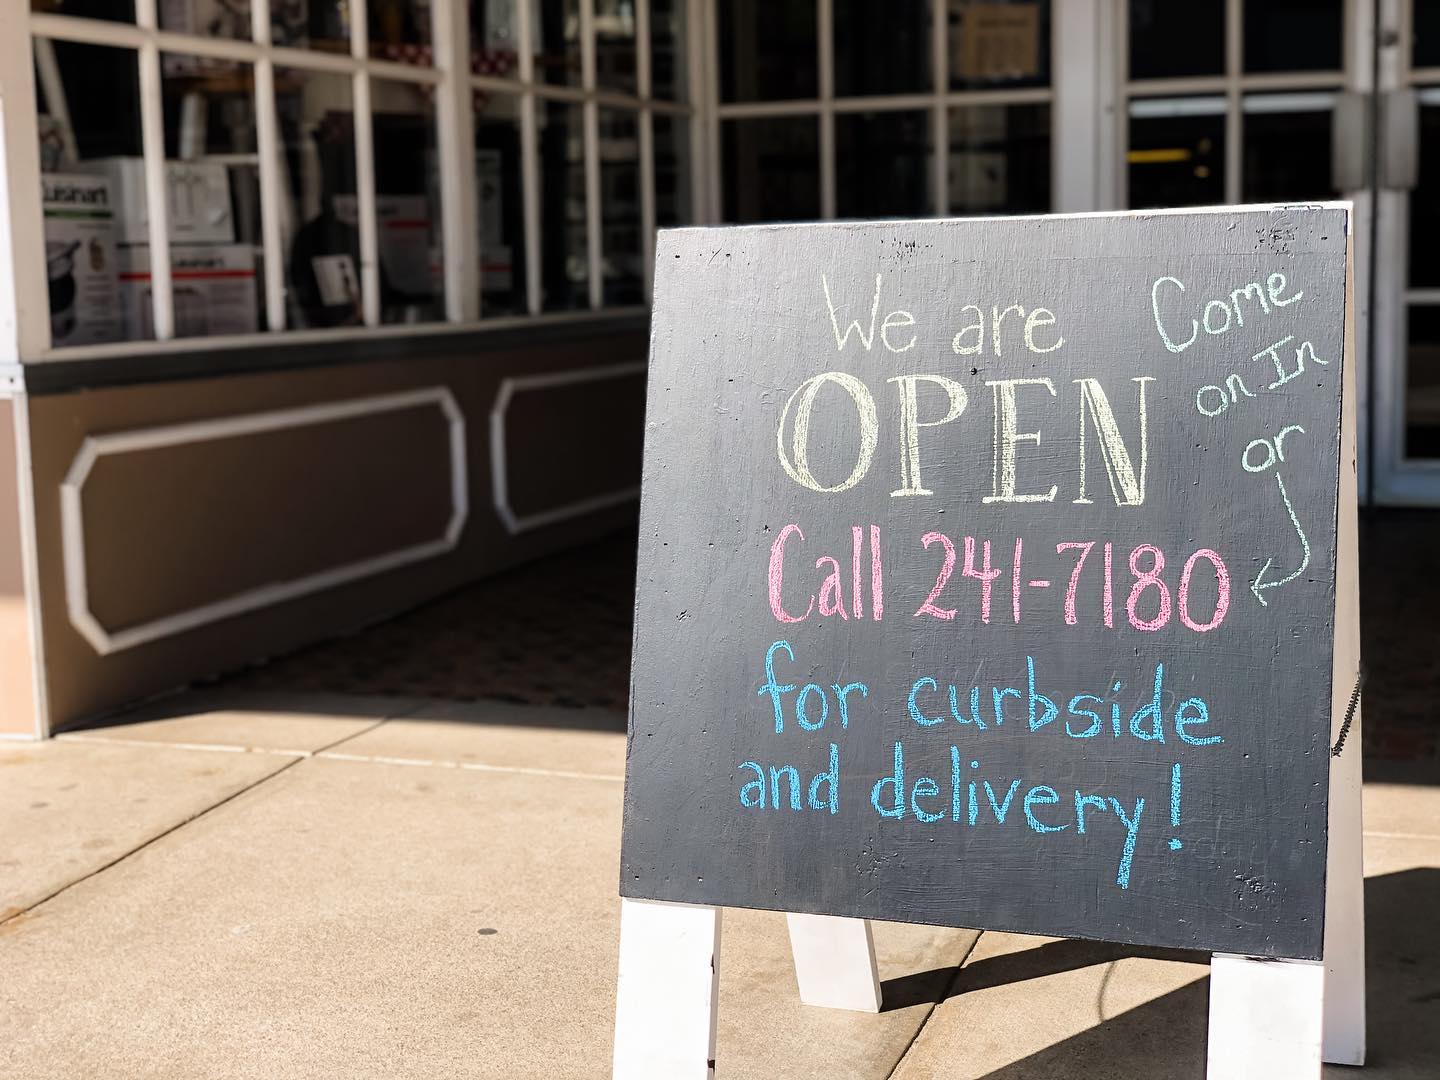 We are
OPEN
Call 241-7180
for curbside
and delivery!
Come
on In
or
Cuisinart